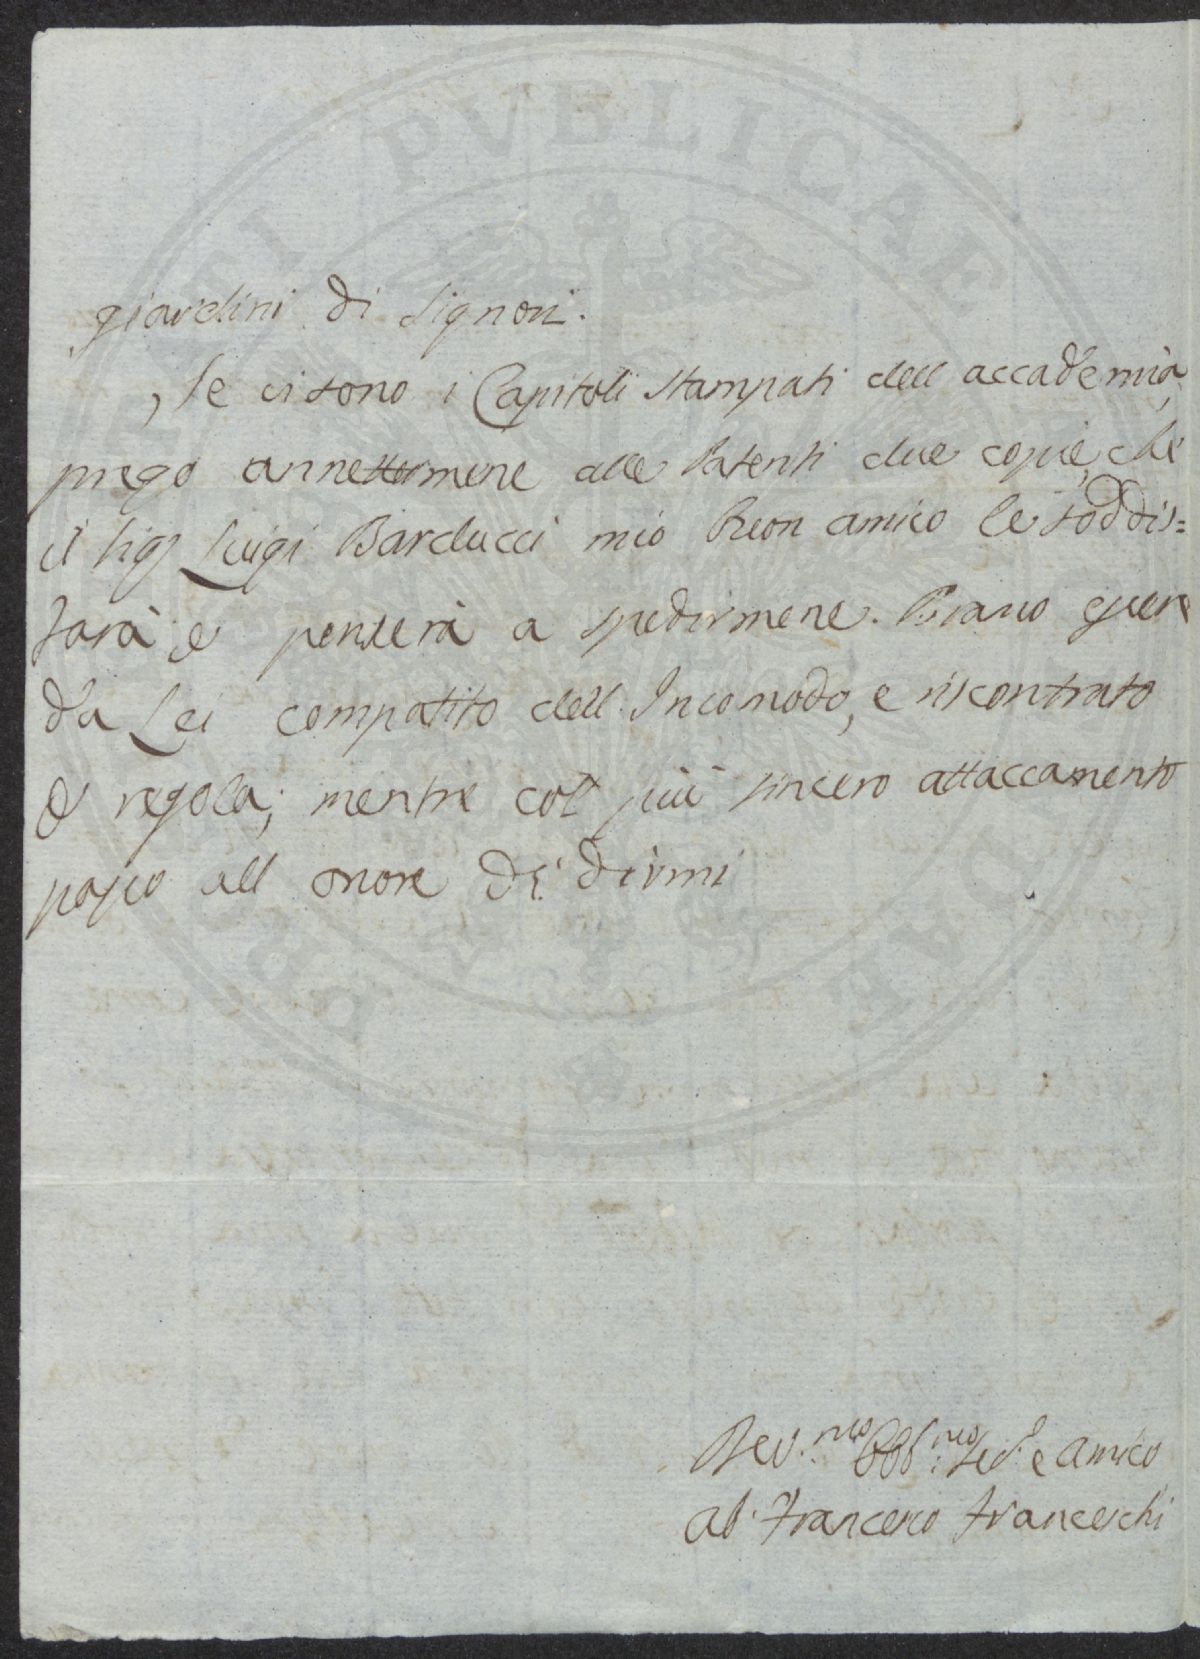 giardini di Signori.
Se ci sono i Capitoli stampati dell accademia,
prego annettermene alle Patenti due copie, che
il Sig. Luigi Barducci mio Buon amico le soddis=
farà e penserà a spedirmene. Bramo esser
da Lei compatito dell Incomodo, e riscontrato
di regola; mentre col più sincero attaccamento
passo all onore di dirmi
Dev.mo Obb.mo Ser.e e Amico
ab. Francesco Franceschi
PUBLICAE